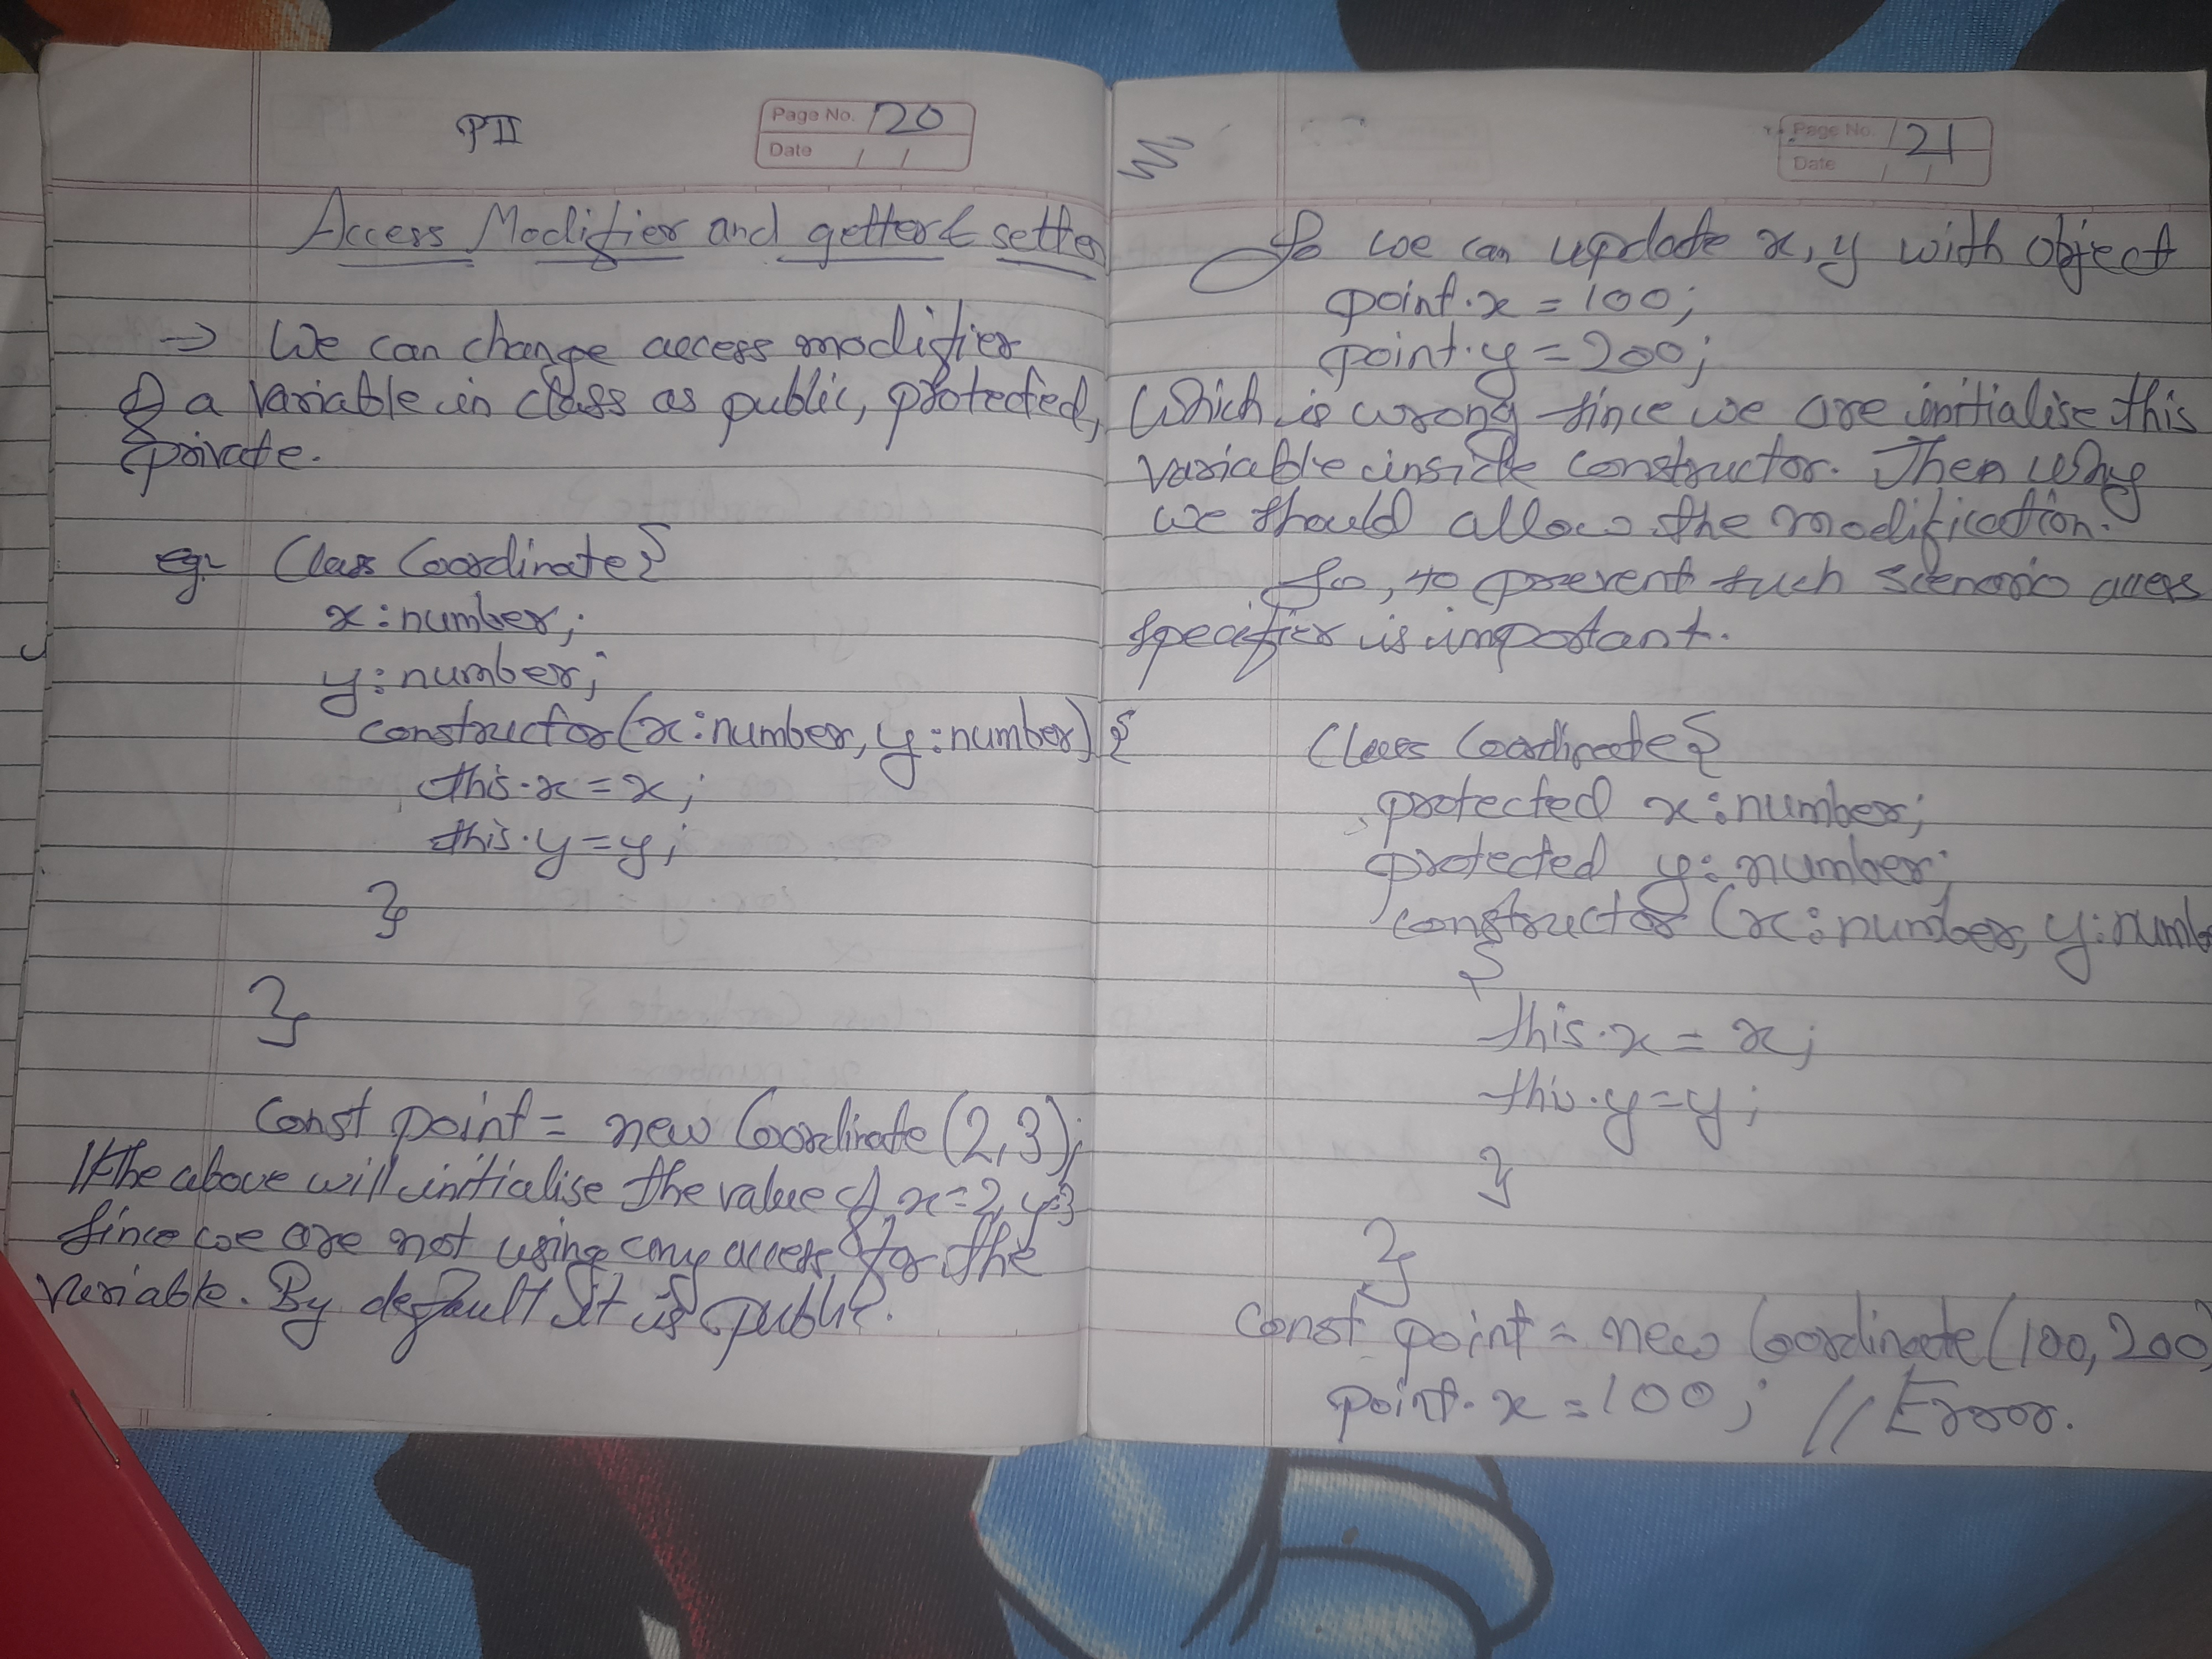 PII
Page No. 120
Date / /
Access Modifier and getter & setter
→ We can change access modifier
of a variable in class as public, protected,
private.
eg:- Class Coordinate {
x : number;
y : number;
constructor (x : number, y : number) {
this.x = x;
this.y = y;
}
}
Const point = new Coordinate (2,3);
// the above will initialise the value of x=2, y=3
Since we are not using any access for the
variable. By default it is public.
Page No. 121
Date / /
So we can update x, y with object
point.x = 100;
point.y = 200;
Which is wrong since we are initialise this
variable inside constructor. Then why
we should allow the modification.
So, to prevent such scenario access
specifier is important.
Class Coordinate {
protected x : number;
protected y : number;
constructor (x : number, y : numbe
{
this.x = x;
this.y = y;
}
}
Const point = new Coordinate (100, 200)
point.x = 100; // Error.